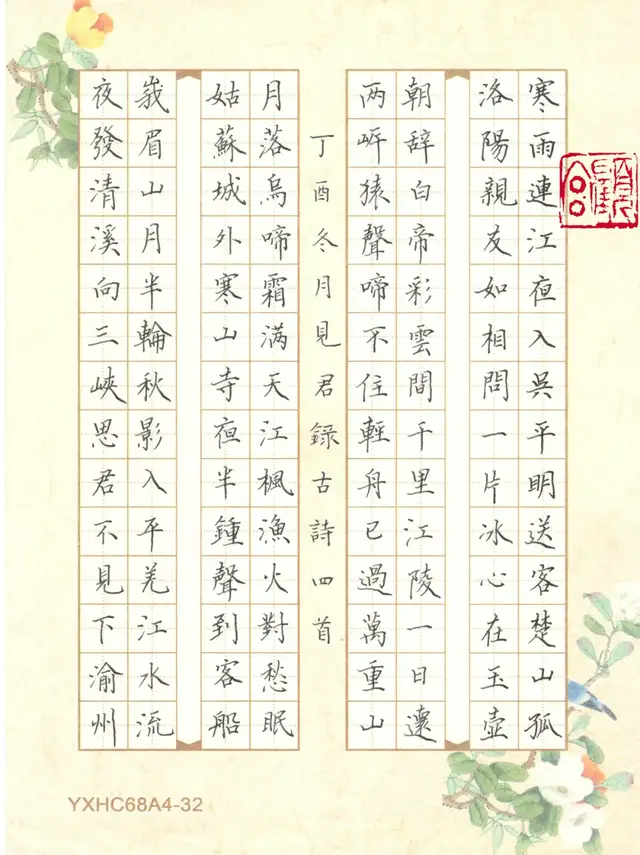 寒雨連江夜入吳平明送客楚山孤
洛陽親友如相問一片冰心在玉壺
朝辭白帝彩雲間千里江陵一日還
兩岍猿聲啼不住輕舟已過萬重山
丁酉冬月見君錄古詩四首
月落烏啼霜滿天江楓漁火對愁眠
姑蘇城外寒山寺夜半鍾聲到客船
峩眉山月半輪秋影入平羌江水流
夜發清溪向三峽思君不見下渝州
YXHC68A4-32